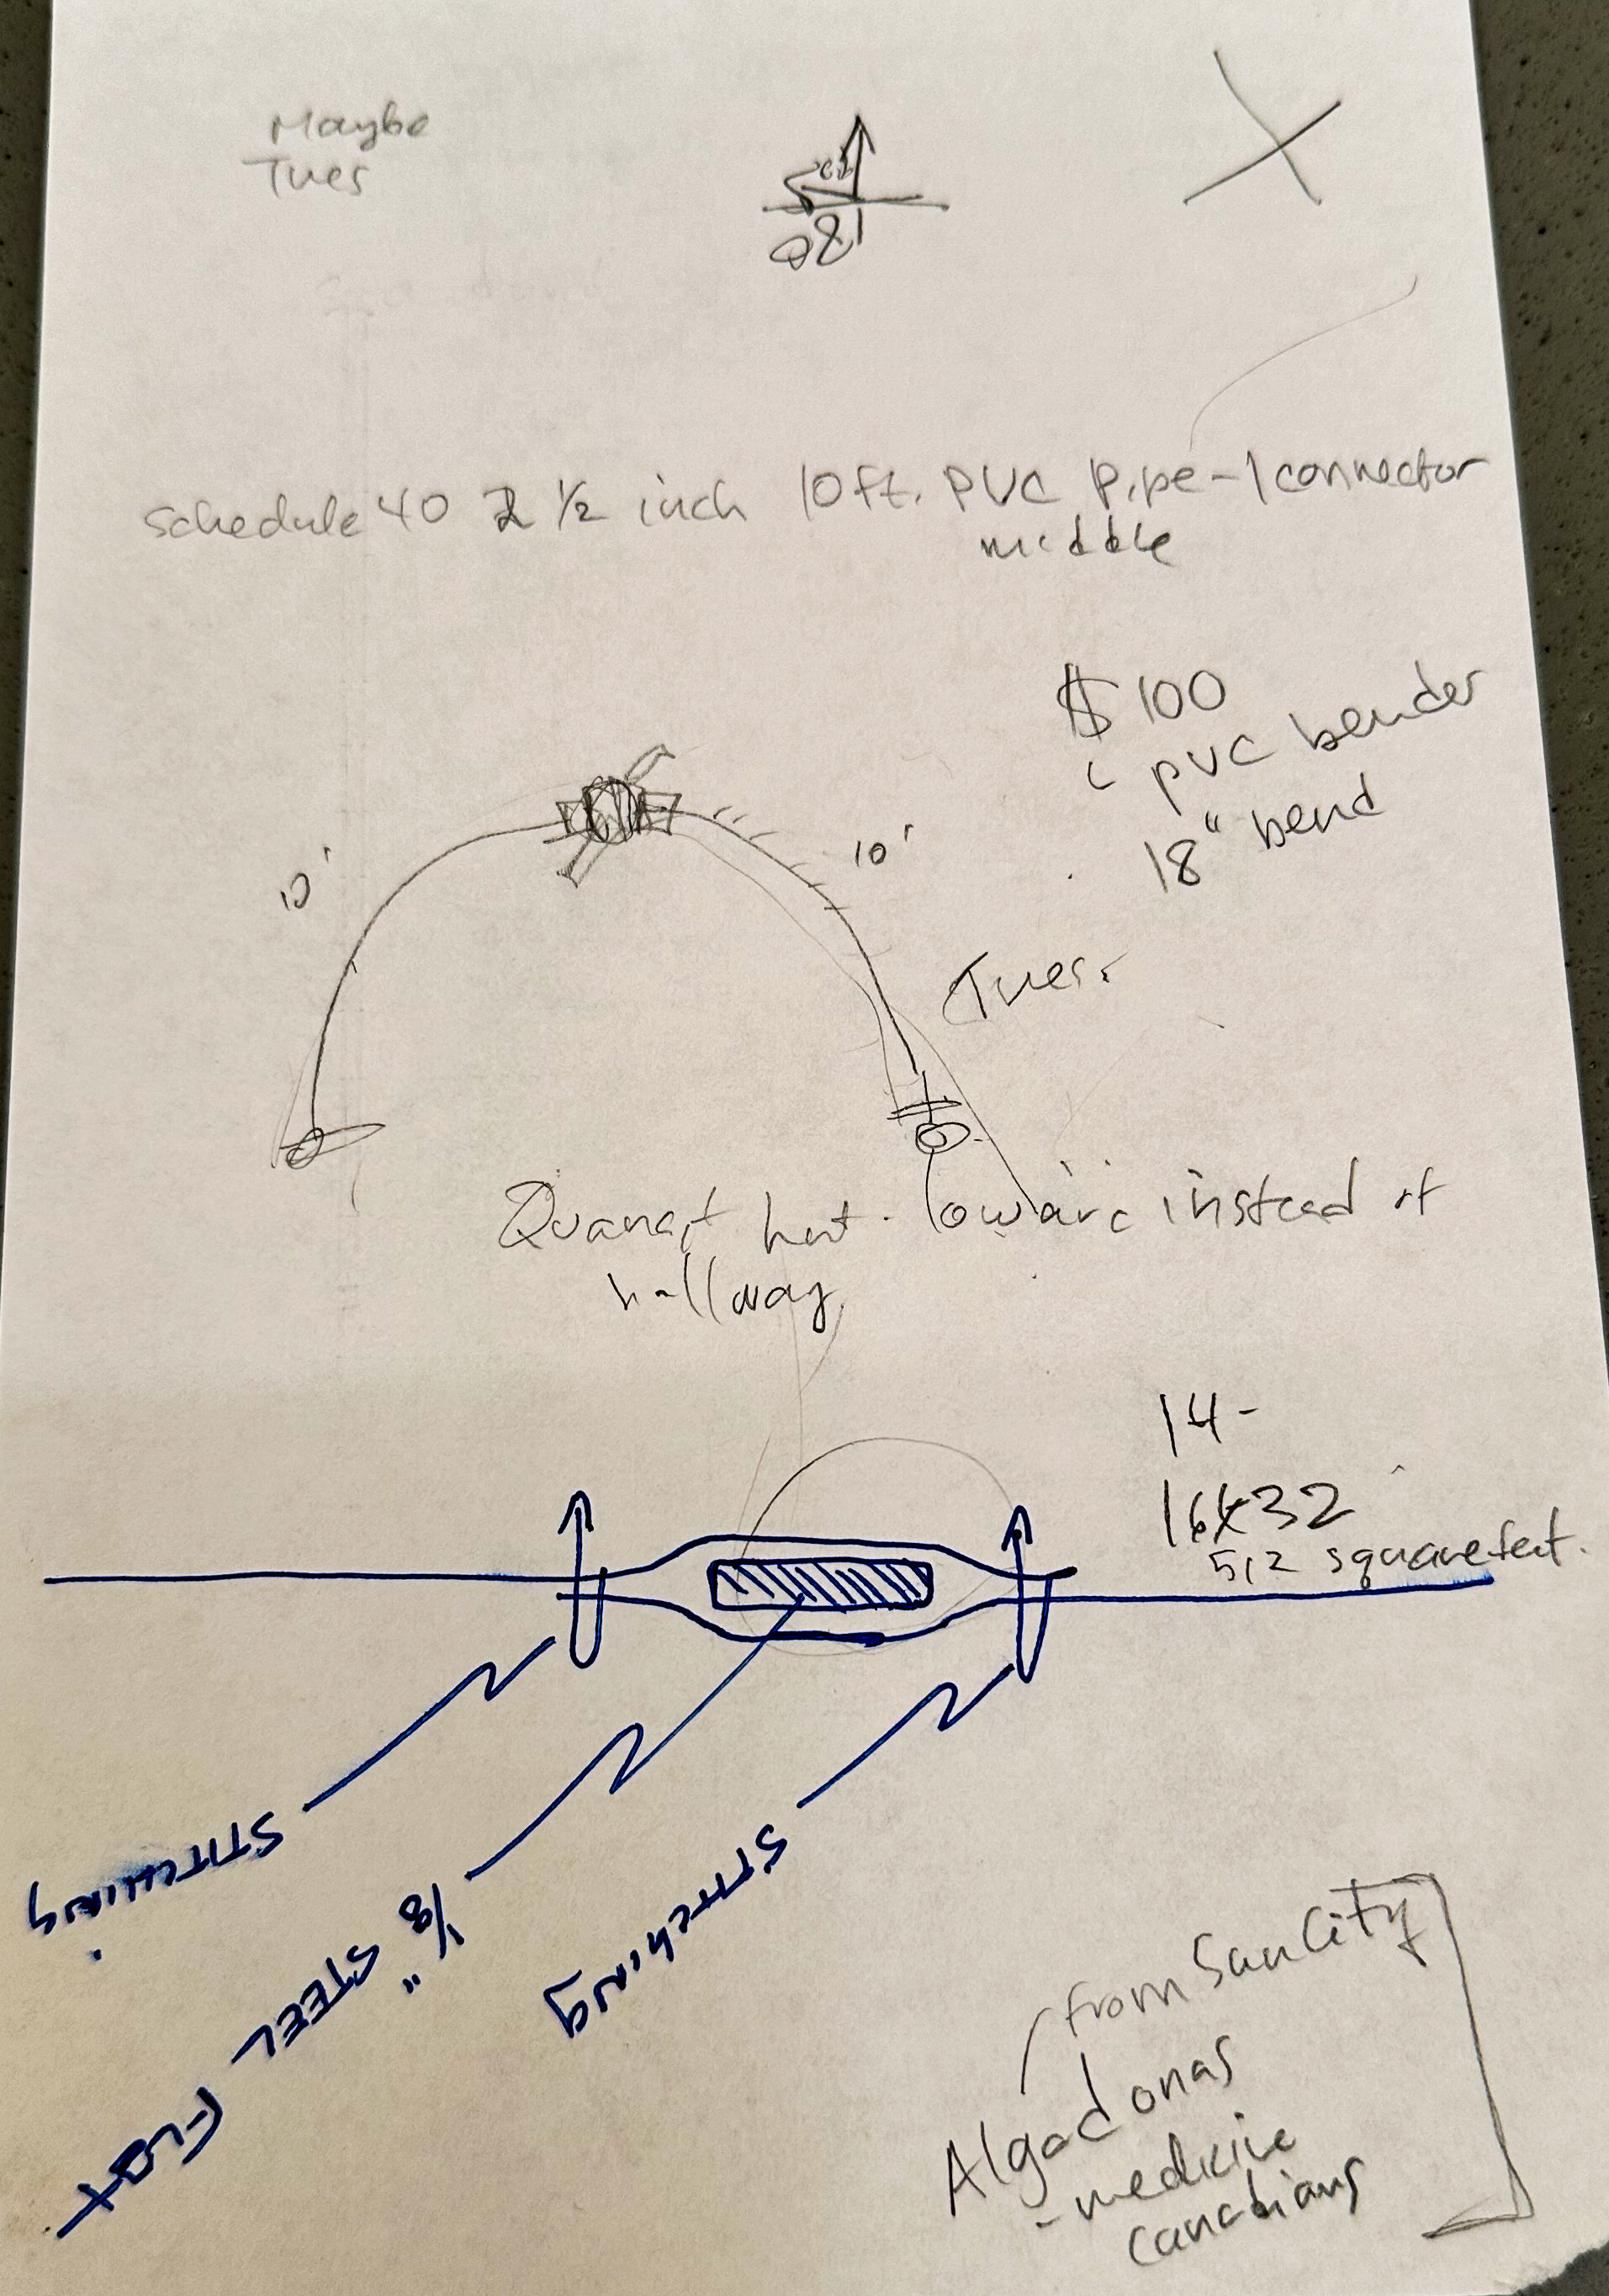 Maybe
Tues
schedule 40 2 1/2 inch 10ft. PVC pipe - 1 connector
middle
$100
PVC bender
18" bend
10'
10'
Tues.
hut. low arc instead of
hallway
14-
16x32
512 square feet.
STITCHING
1/8" STEEL FLAT
STITCHING
from Sun City
Algadonas
- medicine
Canadians